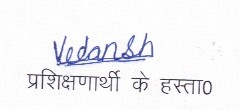 Vedansh
प्रशिक्षणार्थी के हस्ता0